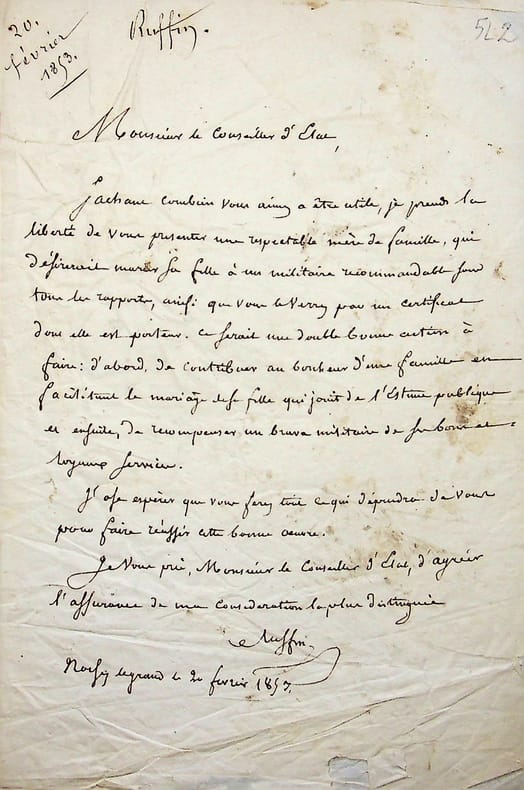 20.
février
1853.
Ruffin.
542
Monsieur le Conseiller d'Etat,
Sachant combien vous aimez a être utile, je prends la
liberté de vous presenter une respectable mère de famille, qui
désirerait marier sa fille à un militaire recommandable sous
tous les rapports, ainsi que vous le verrez par un certificat
dont elle est porteur. Ce serait une double bonne action à
faire: d'abord, de contribuer au bonheur d'une famille en
facilitant le mariage de sa fille qui jouit de l'Estime publique
et ensuite, de recompenser un brave militaire de ses bons et
loyaux services.
J'ose espérer que vous ferez tout ce qui dépendra de vous
pour faire réussir cette bonne oeuvre.
Je vous prie, Monsieur le Conseiller d'Etat, d'agréer
l'assurance de ma consideration la plus distinguée
Ruffin
Noisy legrand le 20 fevrier 1853.